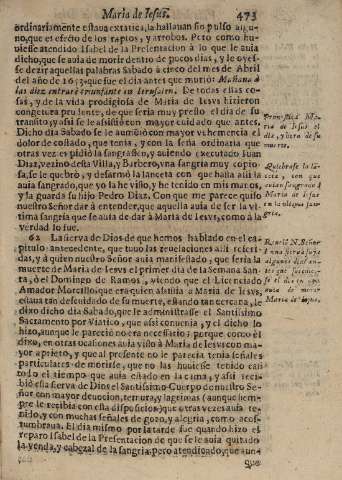 Maria de Iesus. 473
ordinariamente estaua extatica, la hallauan sin pulso algu-
no, que es efecto de los raptos, y arrobos. Pero como hu-
uiesse atendido Isabel de la Presentacion à lo que le auia
dicho, que se auia de morir dentro de pocos dias, y le oyes-
se dezir aquellas palabras Sabado à cinco del mes de Abril
del año de 1653. que fue el dia antes que muriò: Mañana à
las diez entrarè triunfante en Ierusalen. De todas estas co-
sas, y de la vida prodigiosa de Maria de Iesvs hizieron
congetura prudente, de que seria muy presto el dia de su
transito, y assi se le assistiò con mayor cuidado que antes.
Dicho dia Sabado se le aumẽtò con mayor vehemencia el
dolor de costado, que tenia, y con la seña ordinaria que
otras vezes pidiò la sangrassen, y auiendo executado Iuan
Diaz, vezino desta Villa, y Barbero, vna sangria muy copio-
sa, se le quebrò, y desarmò la lanceta con que hasta alli la
auia sangrado, que yo la he visto, y he tenido en mis manos,
y la guarda su hijo Pedro Diaz. Con que me parece quiso
nuestro Señor dar à entender, que aquella auia de ser la vl-
tima sangria que se auia de dar à Maria de Iesvs, como à la
verdad lo fue.
62 La sierva de Dios de que hemos hablado en el ca-
pitulo antecedente, que tuuo las reuelaciones alli referi-
das, y à quien nuestro Señor auia manifestado, que seria la
muerte de Maria de Iesvs el primer dia de la Semana San-
ta, ò el Domingo de Ramos, viendo que el Licenciado
Amador Morcillo, que era quien assistia à Maria de Iesvs,
estaua tan descuidado de su muerte, estando tan cercana, le
dixo dicho dia Sabado, que le administrasse el Santissimo
Sacramento por Viatico, que assi conuenia, y el dicho lo
hizo, aunque le pareciò no era necessario; porque como èl
dixo, en otras ocasiones auia visto à Maria de Iesvs con ma-
yor aprieto, y que al presente no le parecia tenia señales
particulares de morirse, que no las huuiesse tenido casi
todo el tiempo que auia estado en la cama, y assi reci-
biò esta sierva de Dios el Santissimo Cuerpo de nuestro Se-
ñor con mayor deuocion, ternura, y lagrimas (aunque siem-
pre le recibia con esta disposicion) que otras vezes auia te-
nido, y con muchas señales de gozo, y alegria, como acos-
tumbraua. El dia mismo por la tarde fue quando hizo el
reparo Isabel de la Presentacion de que se le auia quitado
la venda, y cabezal de la sangria, pero atendicado, que aun-
que
Pronostica Ma-
ria de Iesus el
dia, y hora de su
muerte.
Quiebrase la lã-
ceta, con que
auian sangrado à
Maria de Iesus
en la vltima san-
gria.
N. Señor
à vna sierva suya
algunos dias an-
tes